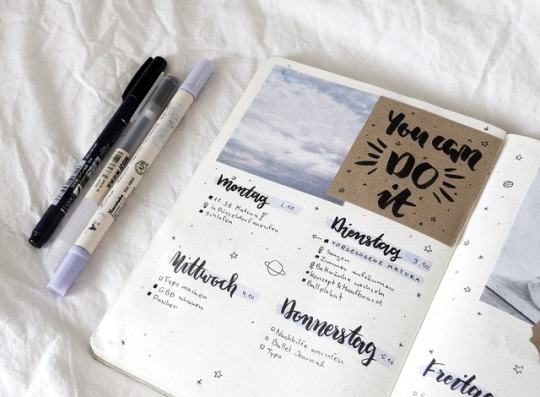 You can
DO
it
Montag 2.10
11:38 Matura
in Düsseldorf anrufen
schlafen
Dienstag 3.10
VORGEZOGENE MATURA
Saugen
Zimmer aufräumen
Bettwäsche wechseln
Konzept & Moodboard
Ballplakat
Mittwoch 4.10
Typo machen
GBB schauen
Duschen
Donnerstag 5.10
Nachhilfe anrufen
Bullet Journal
Typo
Freitag